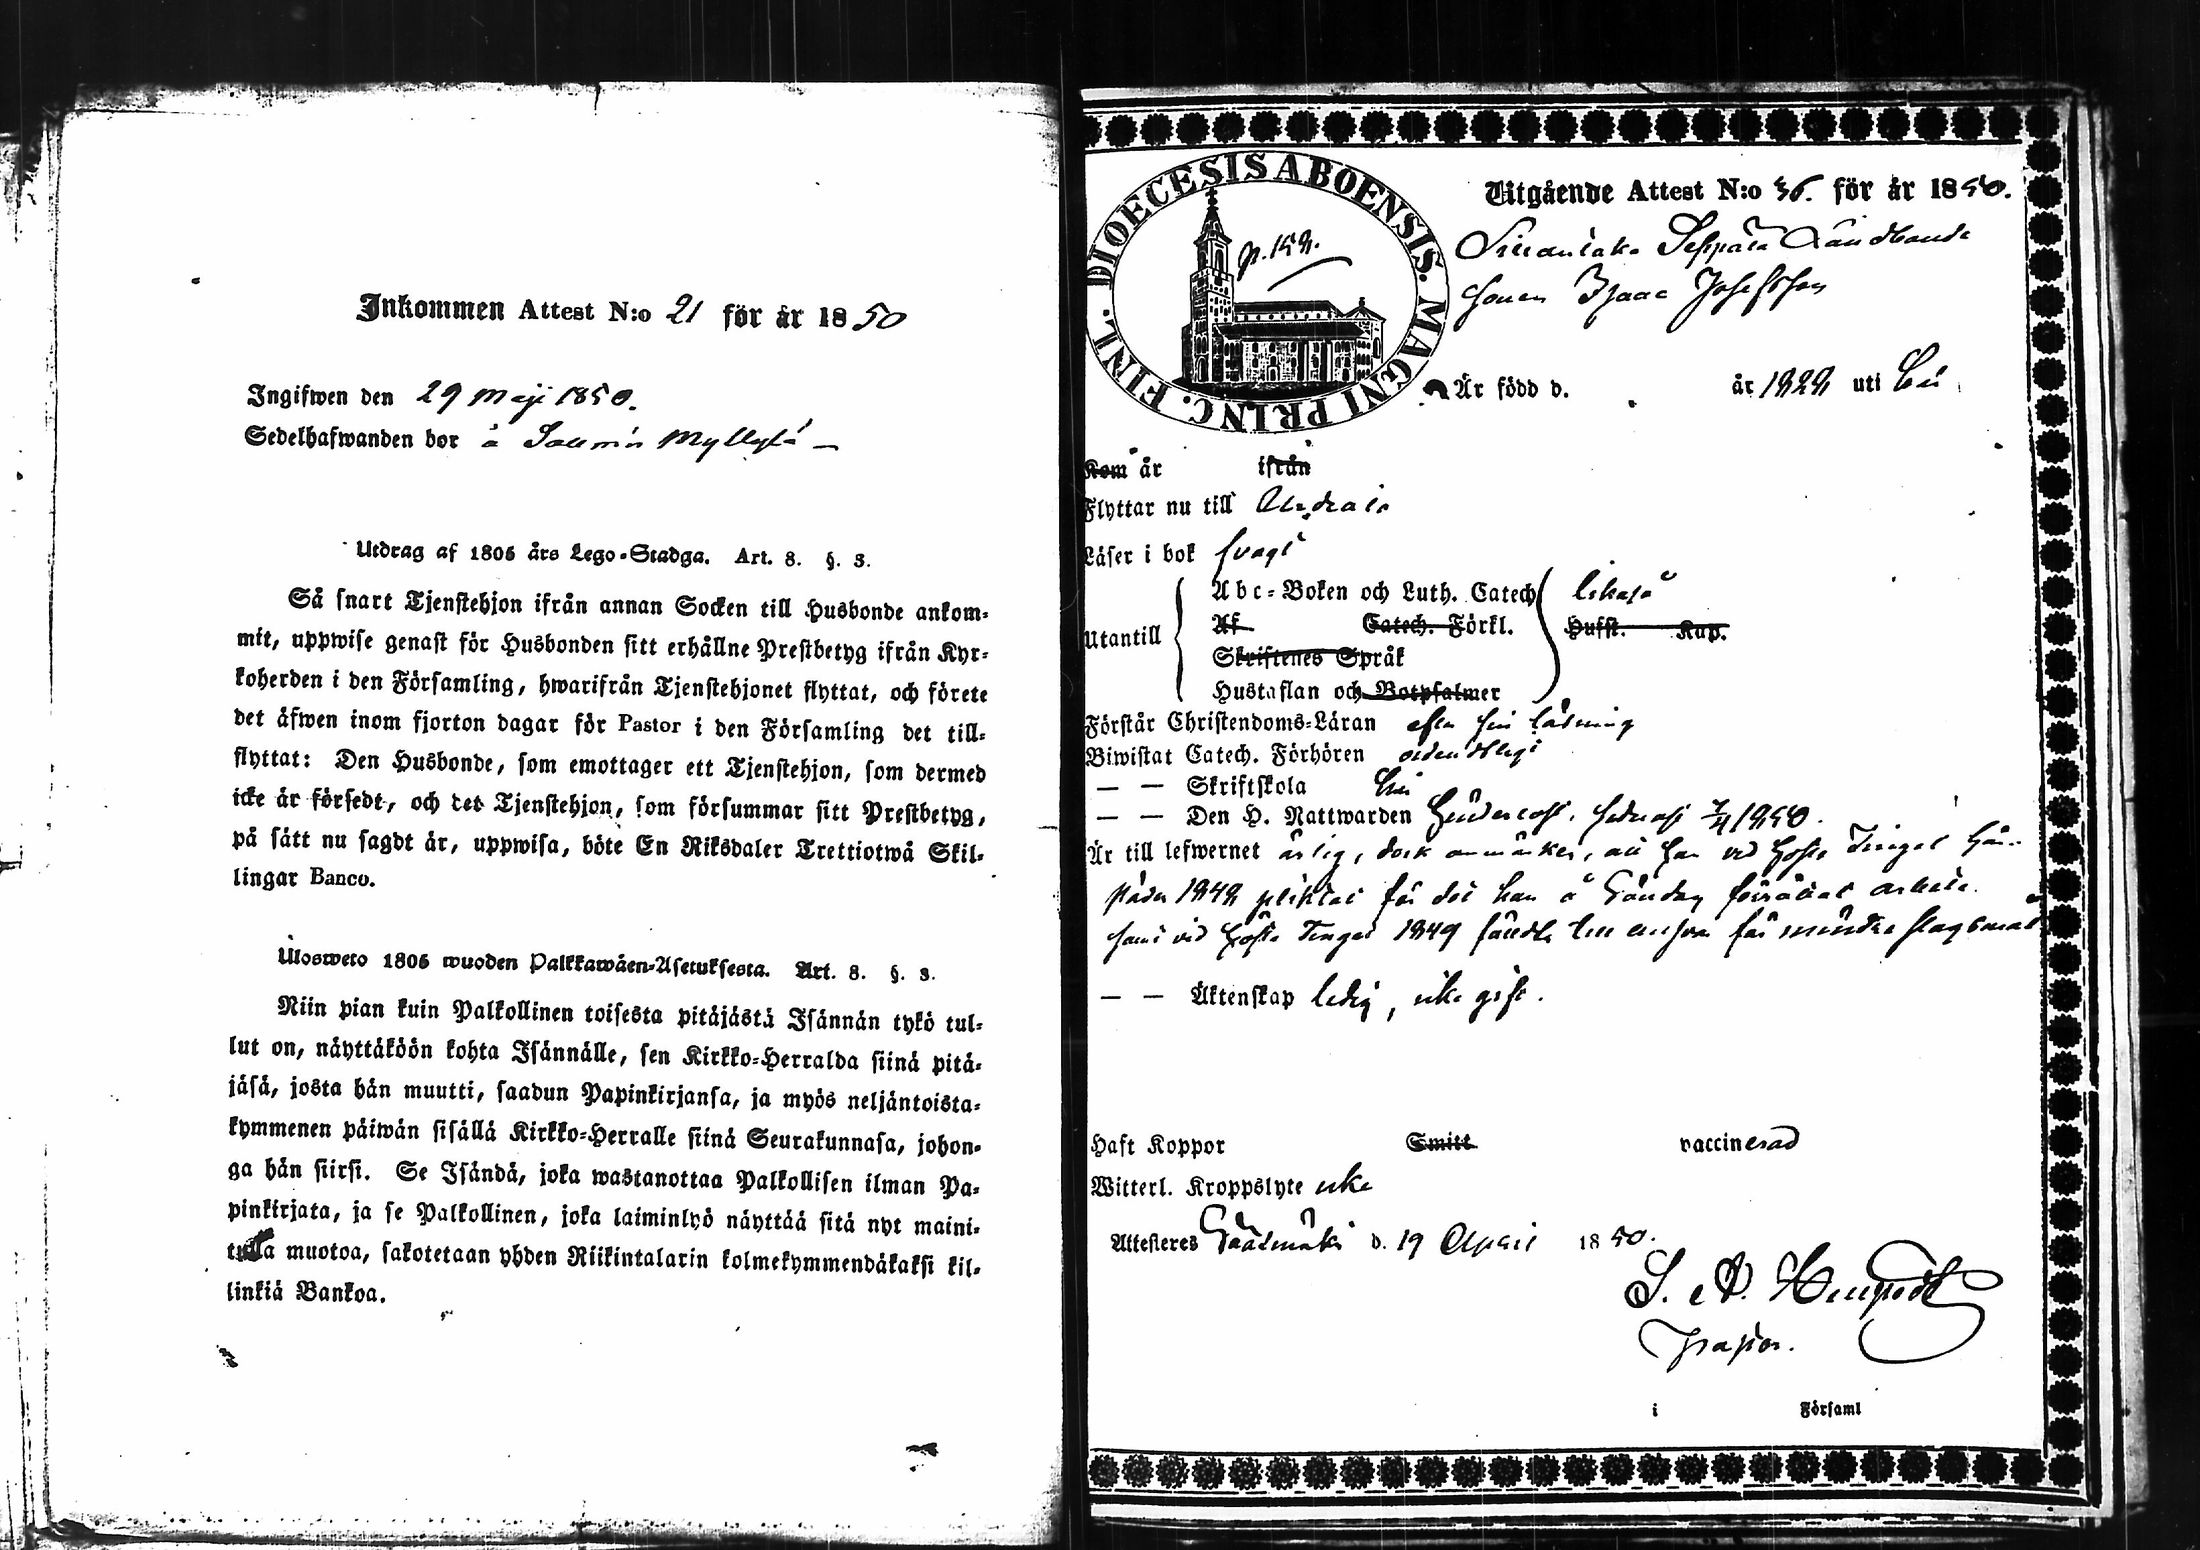 Inkommen Attest N:o 21 för år 1850
Ingifwen den 29 Maji 1850.
Sedelhafwanden bor å Myllylä —
Utdrag af 1805 års Lego-Stadga. Art. 8. §. 3.
Så snart Tjenstehjon ifrån annan Socken till Husbonde ankom-
mit, uppwise genast för Husbonden sitt erhållne Prestbetyg ifrån Kyr-
koherden i den Församling, hwarifrån Tjenstehjonet flyttat, och förete
det äfwen inom fjorton dagar för Pastor i den Församling det till-
flyttat: Den Husbonde, som emottager ett Tjenstehjon, som dermed
icke är försedt, och det Tjenstehjon, som försummar sitt Prestbetyg,
på sätt nu sagdt är, uppwisa, böte En Riksdaler Trettiotwå Skil-
lingar Banco.
Ulosweto 1805 wuoden Palkkawäen-Asetuksesta. Art. 8. §. 3.
Niin pian kuin Palkollinen toisesta pitäjästä Isännän tykö tul-
lut on, näyttäköön kohta Isännälle, sen Kirkko-Herralda siinä pitä-
jäsä, josta hän muutti, saadun Papinkirjansa, ja myös neljäntoista-
kymmenen päiwän sisällä Kirkko-Herralle siinä Seurakunnasa, johon-
ga hän siirsi. Se Isändä, joka wastanottaa Palkollisen ilman Pa-
pinkirjata, ja se Palkollinen, joka laiminlyö näyttää sitä nyt maini-
tulla muotoa, sakotetaan yhden Riikintalarin kolmekymmendäkaksi kil-
linkiä Bankoa.
DIOECESIS ABOENSIS. MAGNI PRINC. FINL.
p. 152.
Utgående Attest N:o 36. för år 1850.
Seppälä Landbonde
sonen Isaac Josefsson
Är född d. år 1828 uti
Kom år ifrån
Flyttar nu till
Läser i bok svagt
Utantill
Abc-Boken och Luth. Catech likaså
Af Catech. Förkl. Husst. Kap.
Skriftenes Språk
Hustaflan och Botpsalmer
Förstår Christendoms-Läran efter sin läsning
Biwistat Catech. Förhören ordentligt
— — Skriftskola
— — Den H. Nattwarden sednast 7/4 1850.
Är till lefwernet ärlig, dock anmärkes, att han vid Höste Tinget
1848 pliktat för det han å Söndag förrättat arbete
samt vid Höste Tinget 1849 för mindre slagsmål
— — Äktenskap ledig, icke gift.
Haft Koppor Smitt vaccinerad
Witterl. Kroppslyte icke
Attesteres Sääksmäki d. 19 April 1850.
Pastor.
i Församl